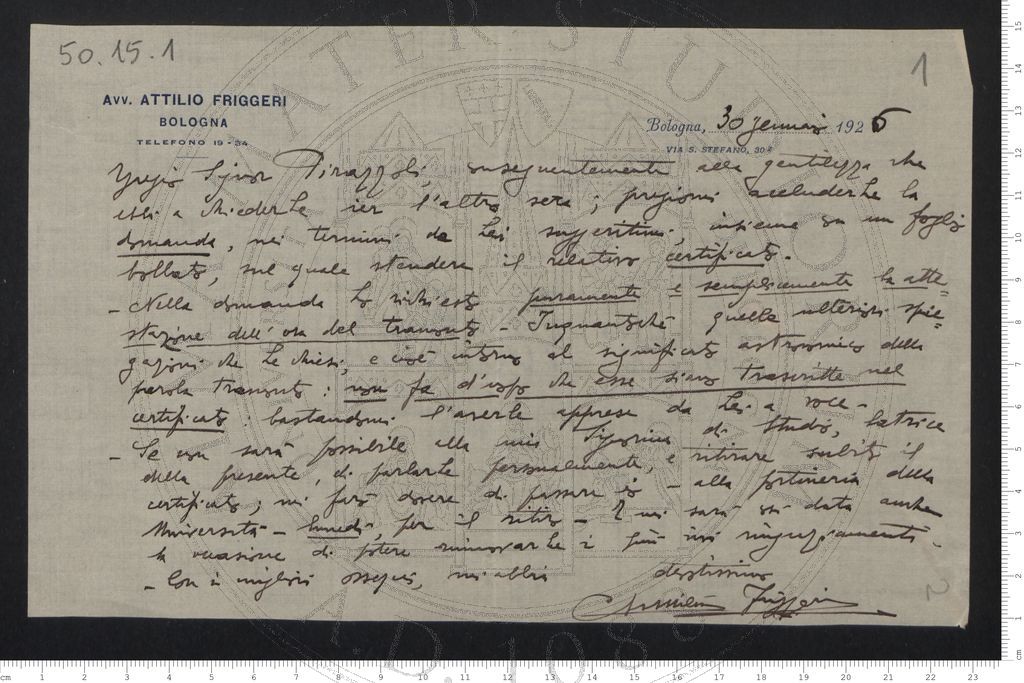 50.15.1
1
AVV. ATTILIO FRIGGERI
BOLOGNA
TELEFONO 19-34
Bologna, 30 gennaio 1926
VIA S. STEFANO, 30
Gregio Signor Pirazzoli, conseguentemente alla gentilezza che
ebbi a chiederLe ier l'altro sera; pregiomi accluderLe la
domanda, nei termini da Lei suggeritimi, insieme con un foglio
bollato, sul quale stendere il relativo certificato.
- Nella domanda ho richiesto puramente e semplicemente la atte-
stazione dell'ora del tramonto - Inquantoché quelle ulteriori spie-
gazioni che Le chiesi, e cioè intorno al significato astronomico della
parola tramonto: non fa d'uopo che esse siano trascritte nel
certificato: bastandomi l'averle apprese da Lei a voce -
- Se non sarà possibile alla mia Signorina di Studio, latrice
della presente, di parlarLe personalmente, e ritirare subito il
certificato; mi farò dovere di passare io - alla portineria della
Università - lunedì, per il ritiro - E mi sarà così data anche
la occasione di potere rinnovarLe i più vivi ringraziamenti.
- Con i migliori ossequi, mi abbia devotissimo
Friggeri
2